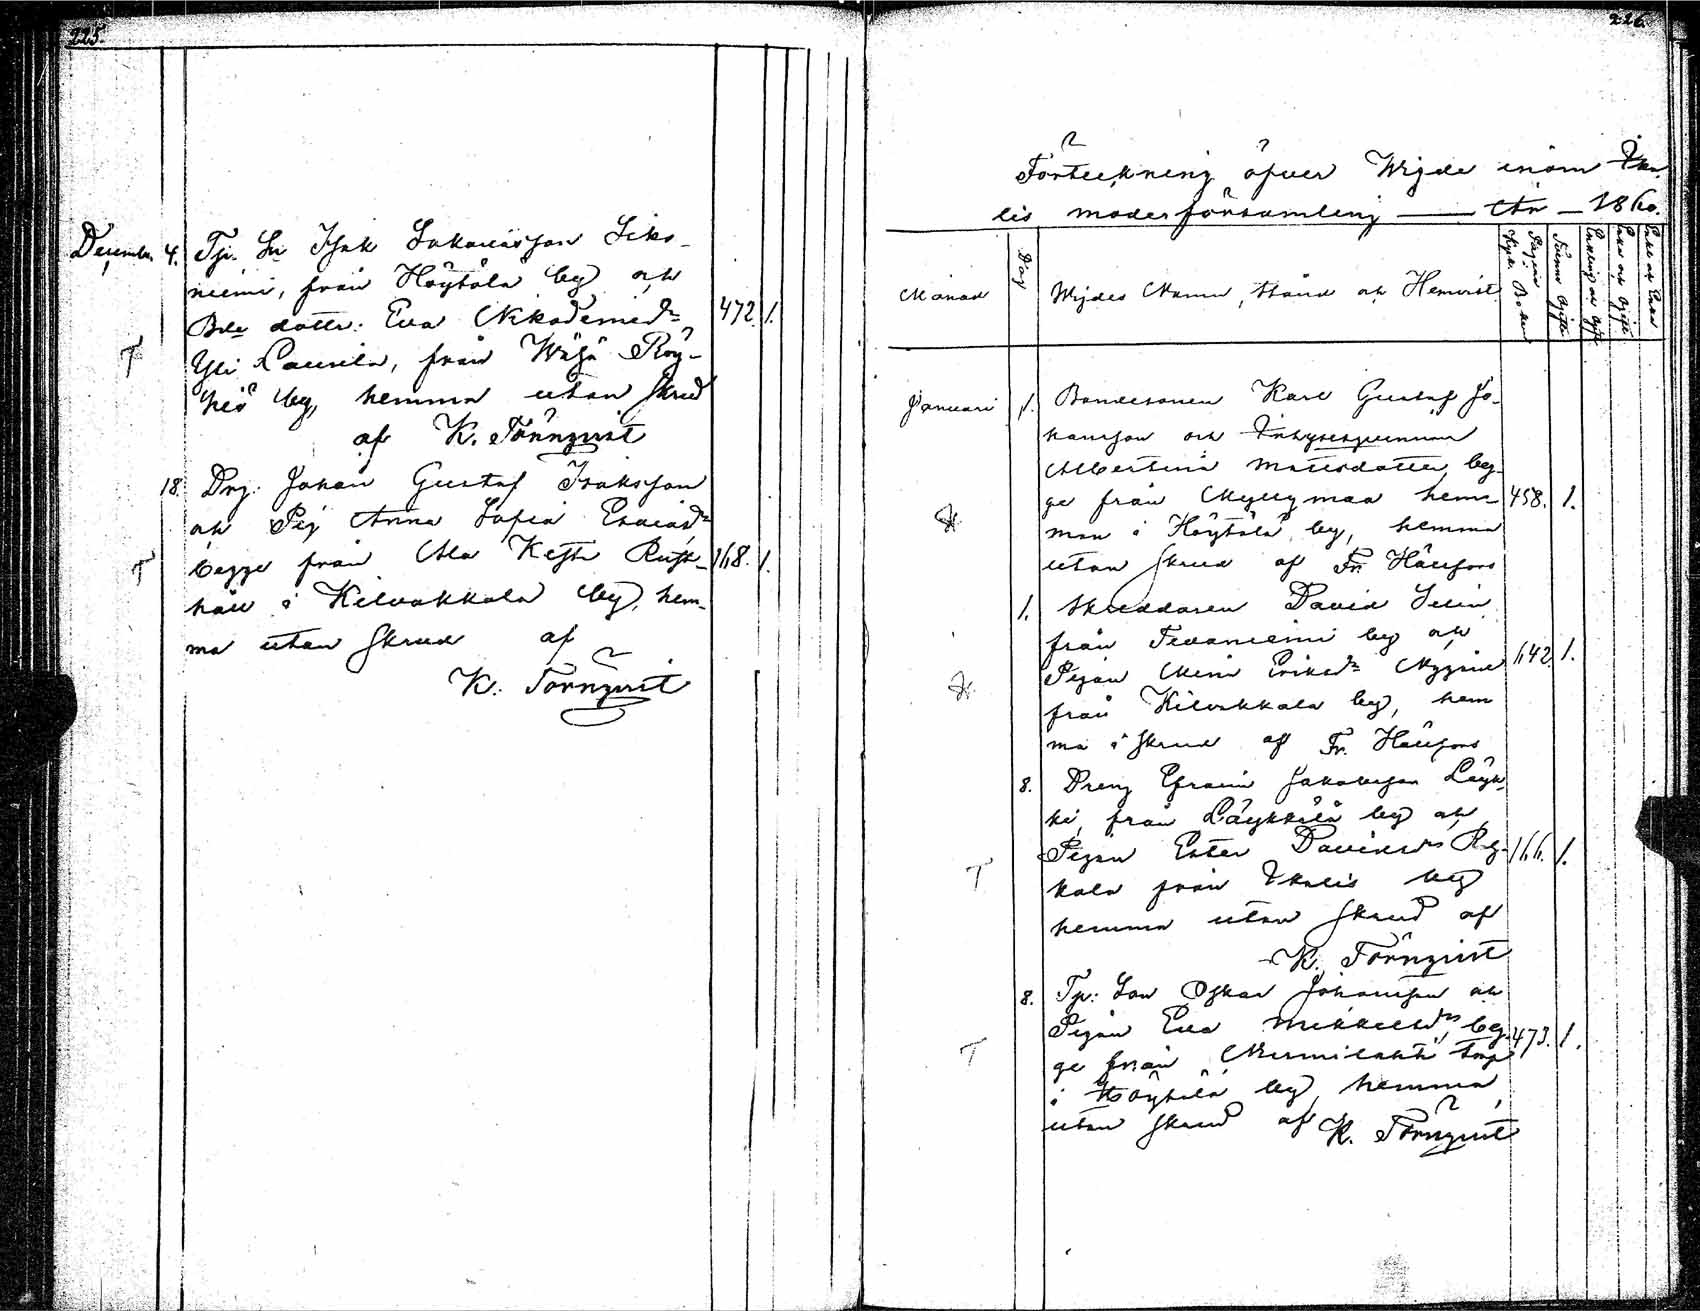 225.
December 4. Tjr. Sn Isak Sakariasson Siko-
niemi, från Höytölä by och
Bde dottr: Eva Nikodemidr
Yli Laurila, från Wähä Röy-
hiö by, hemma utan skrud 472. 1.
T
af K. Törnqvist
18. Drg: Johan Gustaf Isaksson
och Pig Anna Sofia Esaiasdr
begge från Ala Kesti Rust- 168. 1.
T
håll i Kilvakkala by, hem-
ma utan skrud af
K. Törnqvist
226.
Förteckning öfver Wigde inom Ika-
lis moderförsamling — År — 1860.
Månad
Dag
Wigdes Namn, stånd och Hemvist
Pagina i Kyrk. Boken
Januari 1. Bondesonen Karl Gustaf Jo-
hansson och Inhysesqvinnan
Albertina Mattsdotter, beg-
ge från Myllymaa hem- 458. 1.
man i Höytölä by, hemma
utan skrud af Fr. Hällfors
1. Skreddaren David Selin
från Tevaniemi by och
Pigan Mina Eriksdr Nygrin 642. 1.
från Kilvakkala by, hem
ma i skrud af Fr. Hällfors
8. Dreng Efraim Jakobsson Läyk-
ki, från Läykkälä by och
Pigan Ester Davidsdr 166. 1.
T
kala från Ikalis by
hemma utan skrud af
K. Törnqvist
8. Tjr: Son Oskar Johansson och
Pigan Eva Mikkelsdr, beg- 473. 1.
T
ge från Nurmilahti torp
i Höytölä by, hemma,
utan skrud af K. Törnqvist